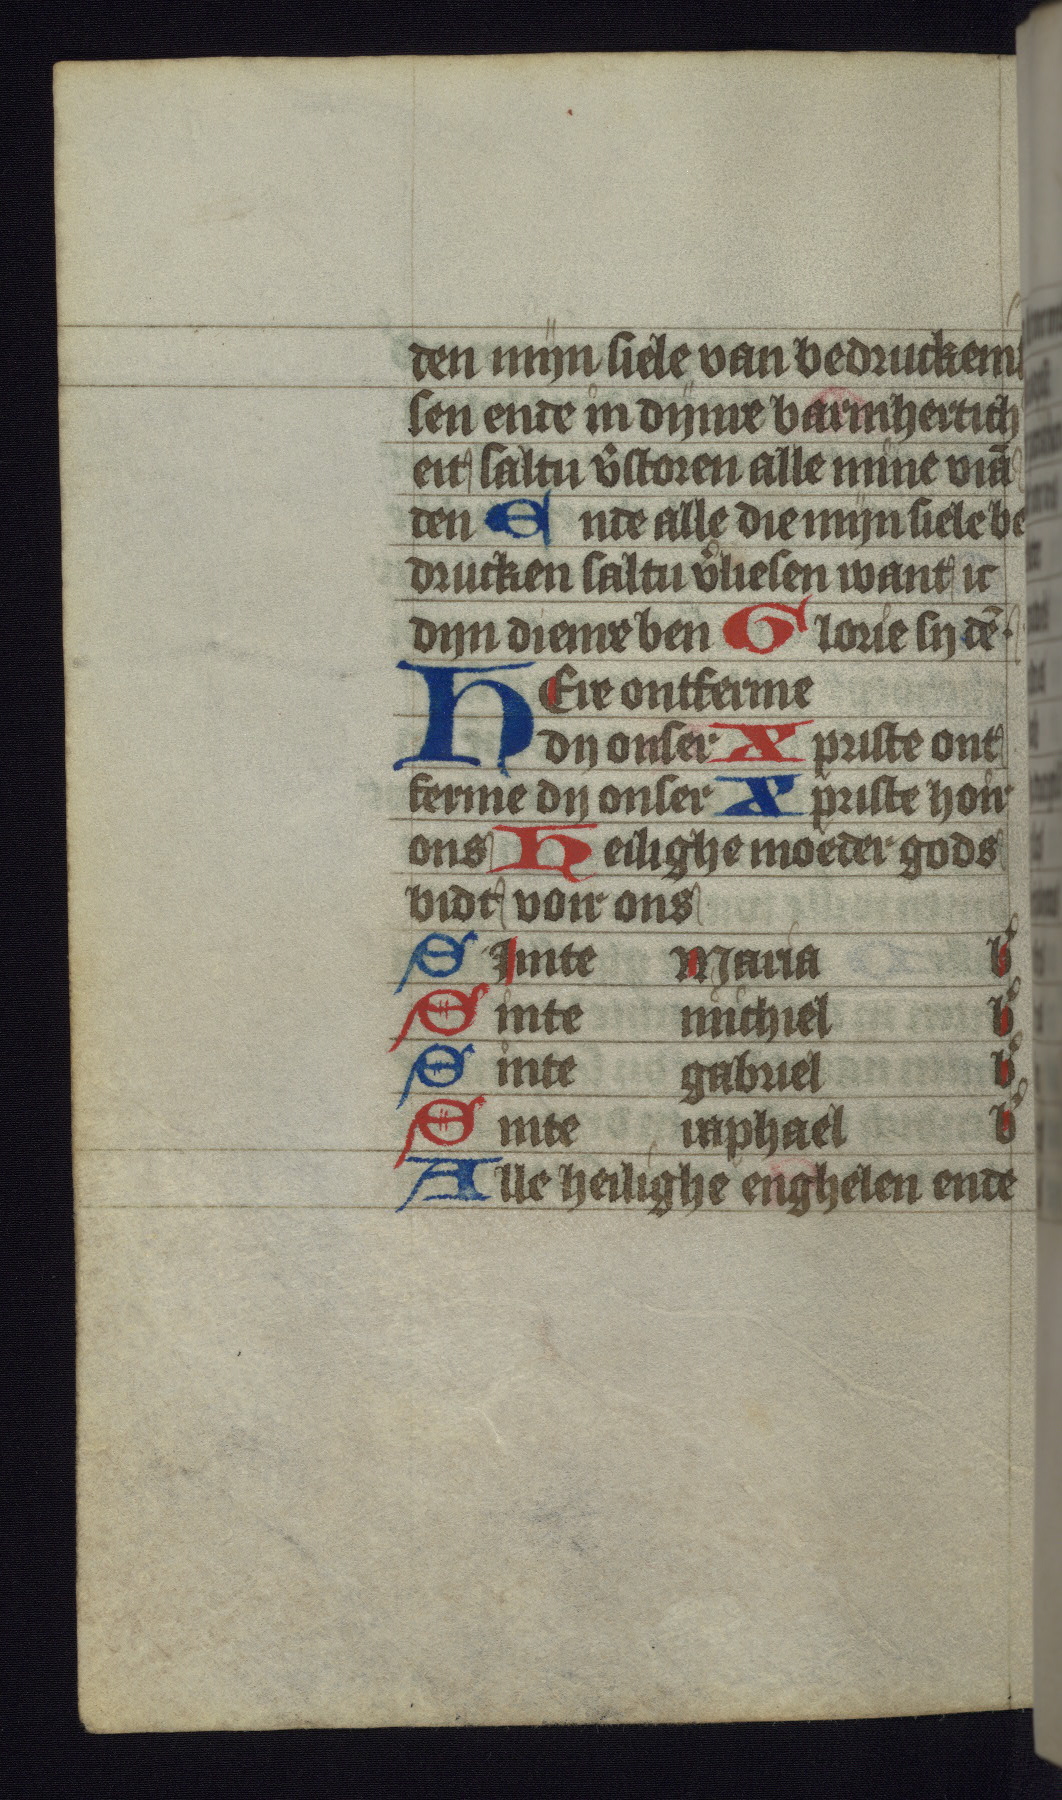 ten mijn siele van bedruckem
sen ente in dijnre barmhertich
eit saltu v̉storen alle mine viā
ten Ente alle die mijn siele be
drucken saltu v̉liesen want ic
dijn dienre ben Glorie sij dē
HEre ontferme
dij onser Xpriste ont
ferme dij onser Xpriste hoir
ons Heilighe moeder gods
bidt voir ons
SInte Maria b
Sinte michiel b
Sinte gabriel b
Sinte raphael b
Alle heilighe enghelen ente